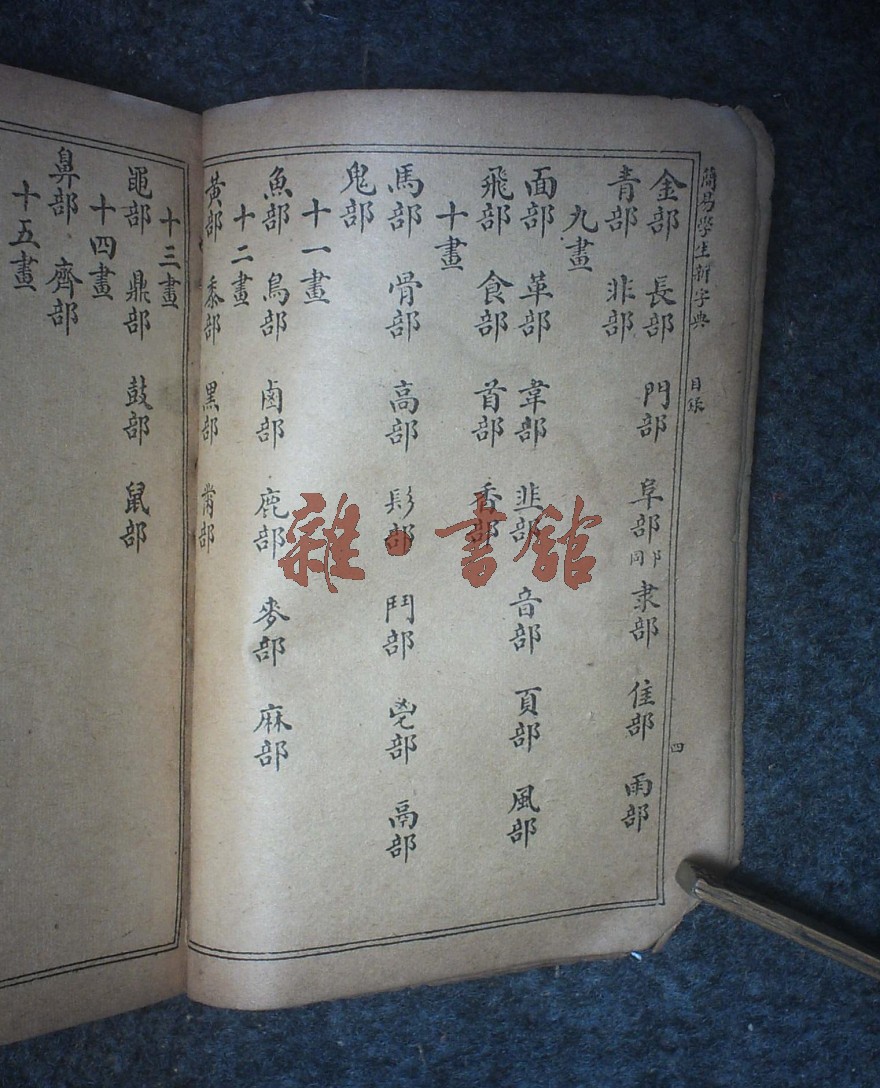 簡易學生新字典 目錄 四
金部 長部 門部 阜部 阝同 隶部 隹部 雨部
青部 非部
九畫
面部 革部 韋部 韭部 音部 頁部 風部
飛部 食部 首部 香部
十畫
馬部 骨部 高部 髟部 鬥部 鬯部 鬲部
鬼部
十一畫
魚部 鳥部 鹵部 鹿部 麥部 麻部
十二畫
黃部 黍部 黑部 黹部
十三畫
黽部 鼎部 鼓部 鼠部
十四畫
鼻部 齊部
十五畫
雜·書館